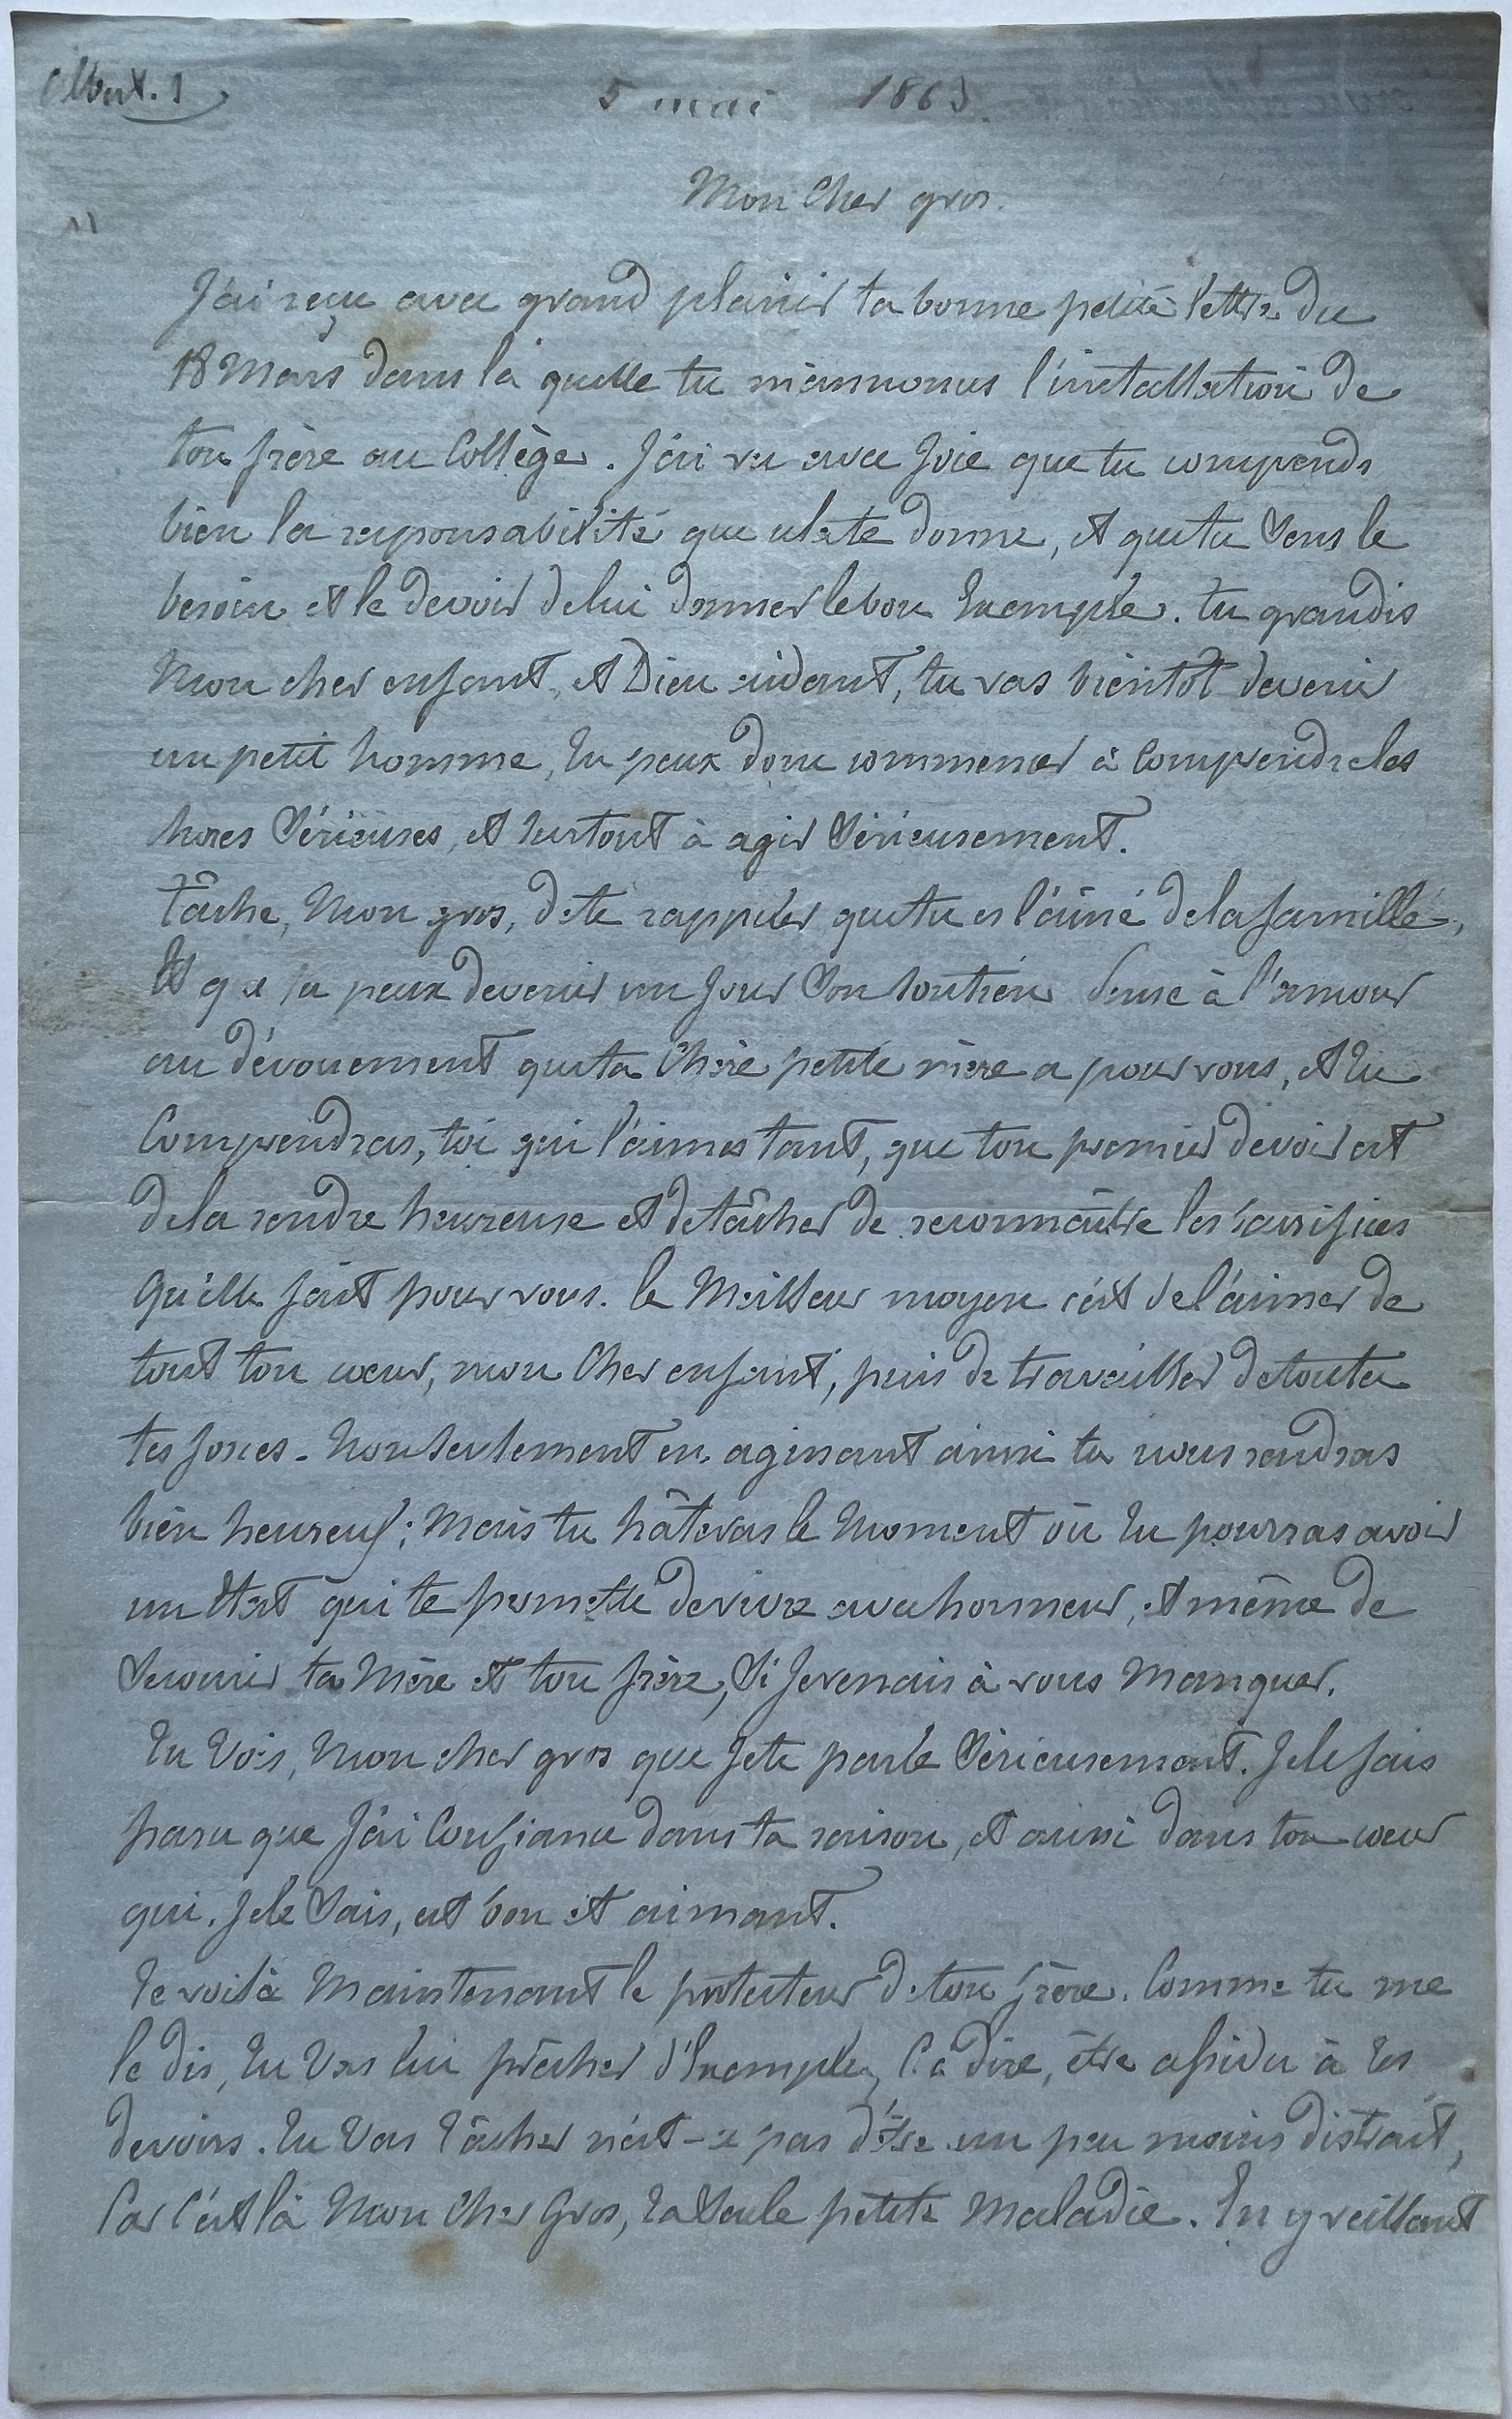 Albert. 1
5 mai 1863.
11
Mon Cher gros.
J'ai reçu avec grand plaisir ta bonne petite lettre du
18 Mars dans la quelle tu m'annonces l'installation de
ton frère au Collège. J'ai vu avec Joie que tu comprends
bien la responsabilité que cela te donne, et que tu sens le
besoin et le devoir de lui donner le bon Exemple. tu grandis
Mon cher enfant, et Dieu aidant, tu vas bientôt devenir
un petit homme, tu peux donc commencer à Comprendre les
choses Sérieuses, et surtout à agir Sérieusement.
tâche, Mon gros, de te rappeler que tu es l'aîné de la famille,
Et que tu peux devenir un Jour Son soutien Pense à l'amour
au dévouement que ta Chère petite mère a pour vous, et tu
Comprendras, toi qui l'aimes tant, que ton premier devoir est
de la rendre heureuse et de tâcher de reconnaître les sacrifices
Qu'elle fait pour vous. le Meilleur moyen c'est de l'aimer de
tout ton cœur, mon Cher enfant, puis de travailler de toutes
tes forces. Non seulement en agissant ainsi tu nous rendras
bien heureux; Mais tu hâteras le Moment où tu pourras avoir
un Etat qui te permette de vivre avec honneur, et même de
Secourir ta Mère et ton frère, Si Je venais à vous Manquer.
Tu Vois, Mon cher gros que Je te parle Sérieusement. Je le fais
parce que J'ai Confiance dans ta raison, et aussi dans ton cœur
qui. Je le Sais, est bon et aimant.
Te voilà Maintenant le protecteur de ton frère. Comme tu me
le dis, tu Vas lui prêcher d'Exemple, C. à dire, être assidu à tes
devoirs. Tu Vas tâcher n'est-ce pas d'être un peu moins distrait,
Car C'est là Mon Cher Gros, ta Seule petite Maladie. En y veillant